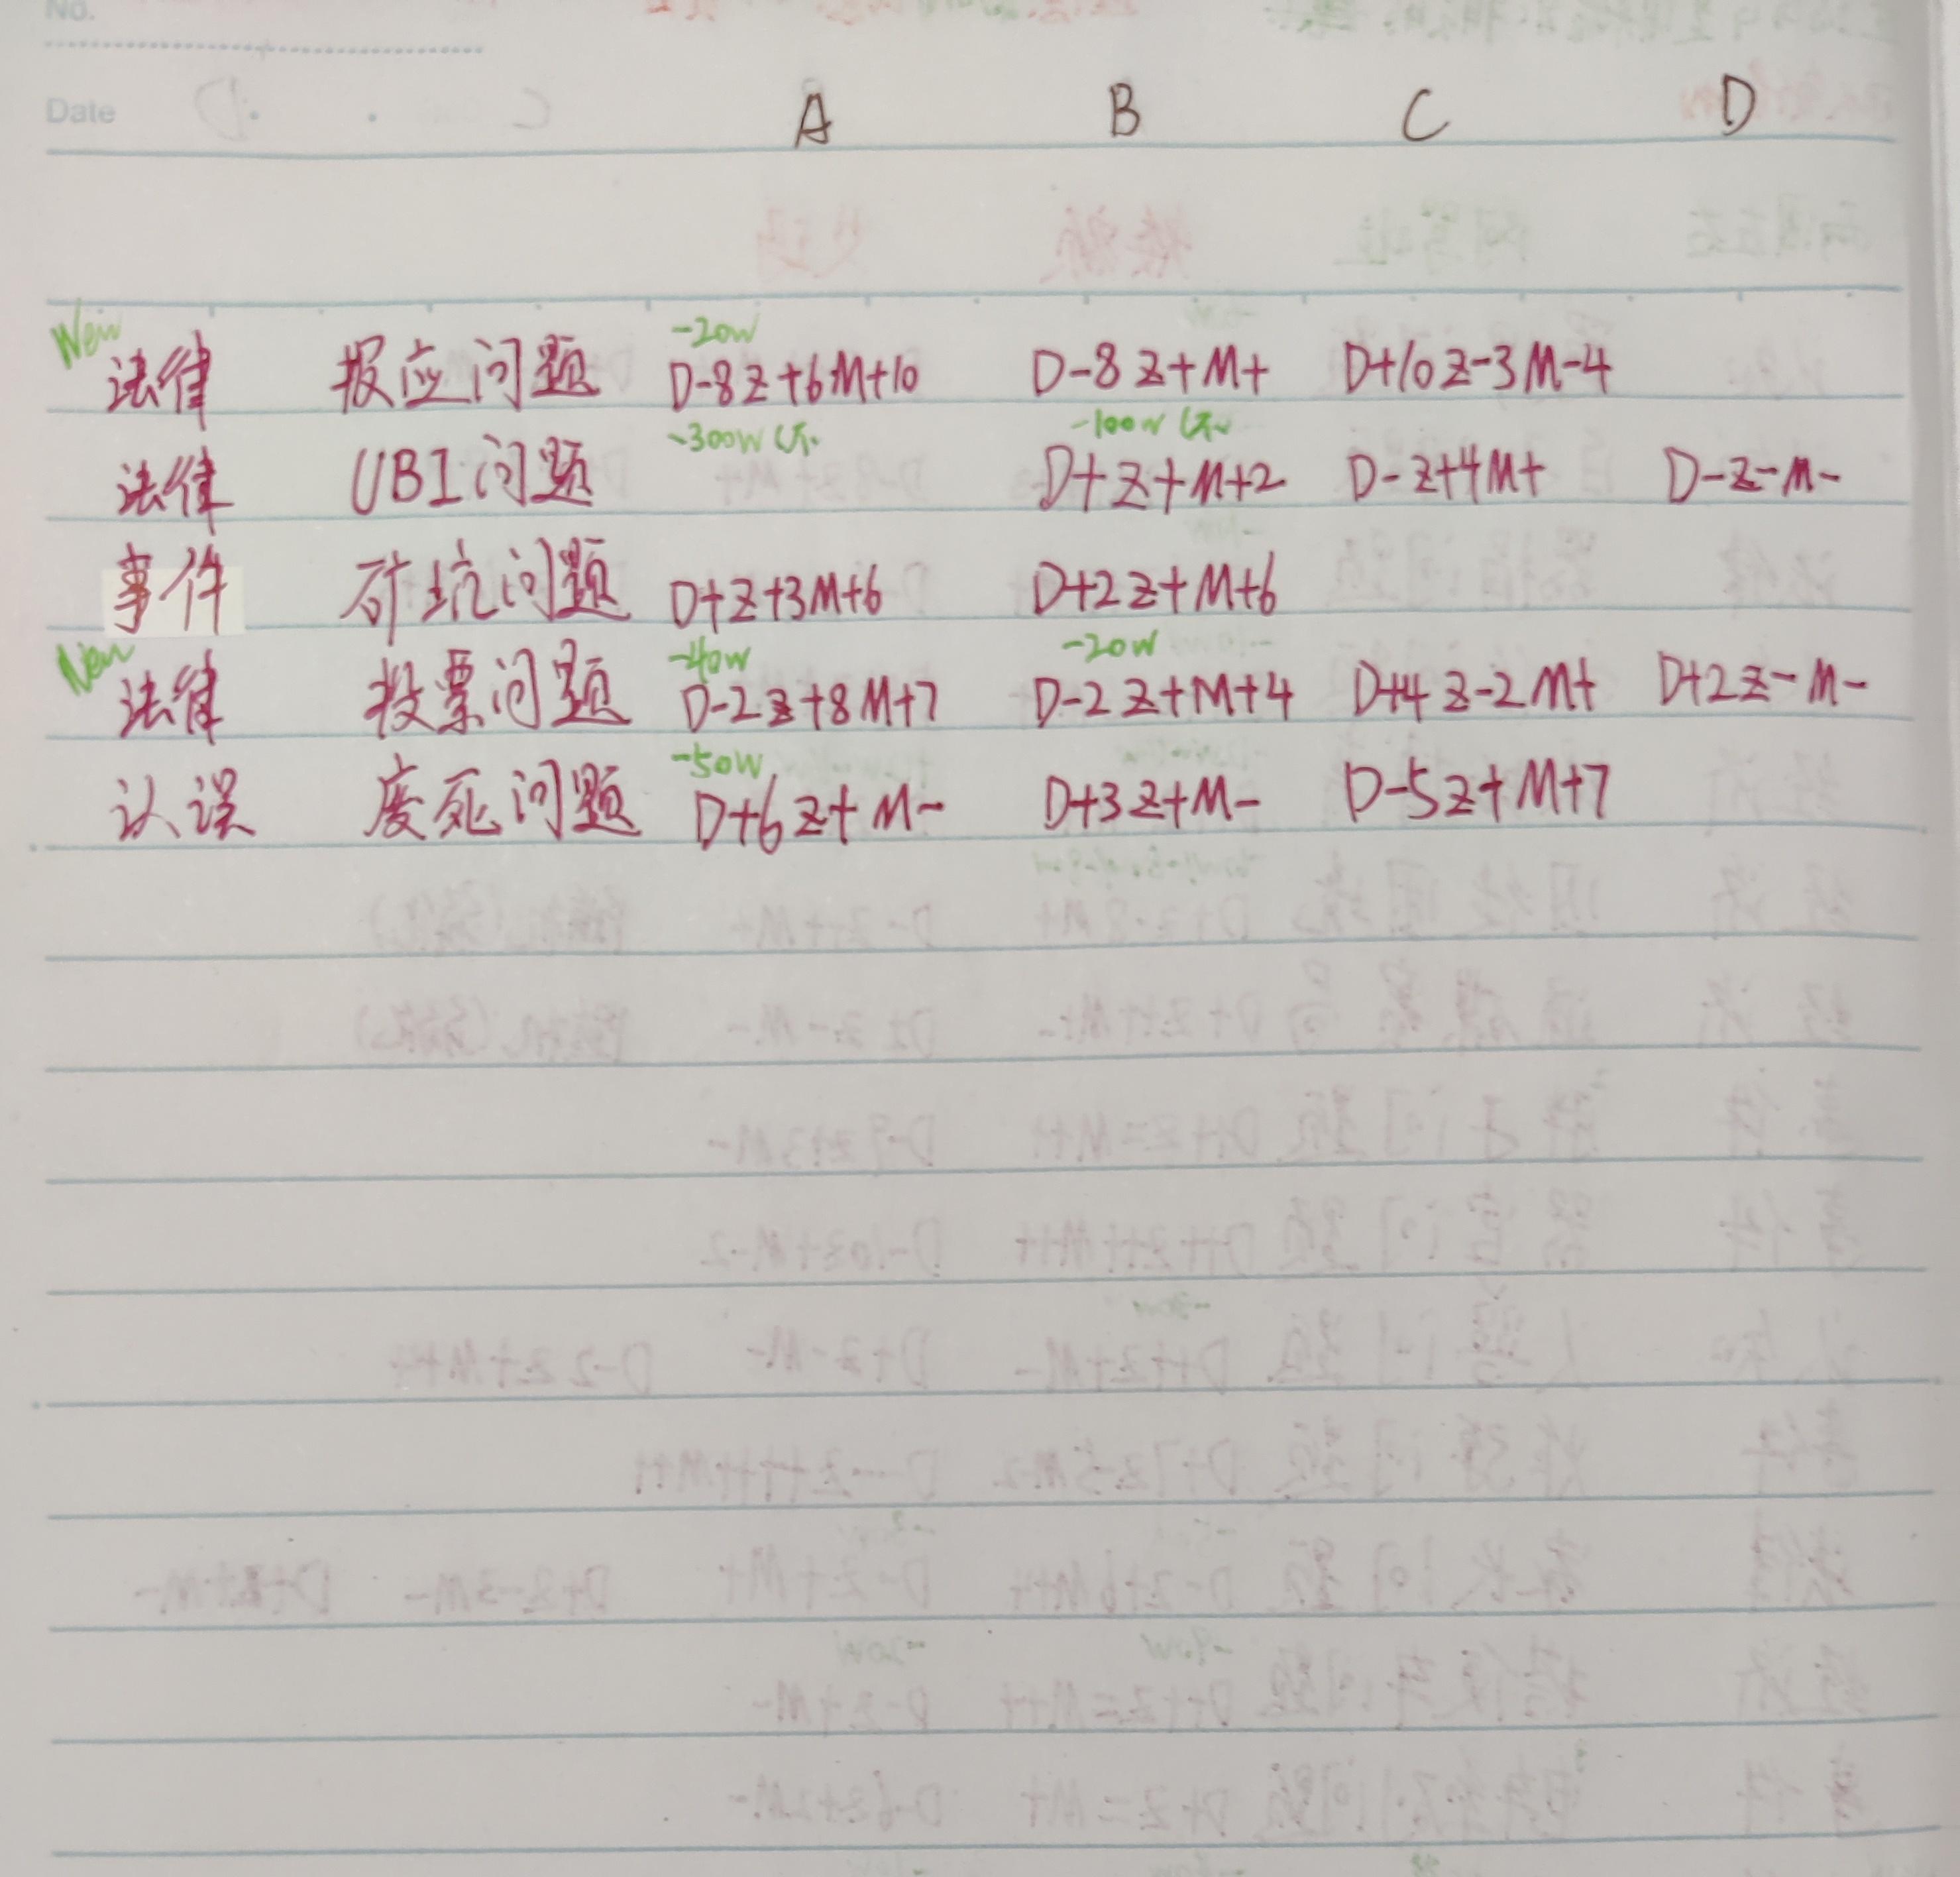 No.
Date
A B C D
New -20w
法律 报应问题 D-8Z+6M+10 D-8Z+M+ D+10Z-3M-4
-300w -100w
法律 UBI问题 D+Z+M+2 D-Z+4M+ D-Z-M-
事件 矿坑问题 D+Z+3M+6 D+2Z+M+6
New -40w -20w
法律 投票问题 D-2Z+8M+7 D-2Z+M+4 D+4Z-2M+ D+2Z-M-
-50w
认误 废死问题 D+6Z+M- D+3Z+M- D-5Z+M+7